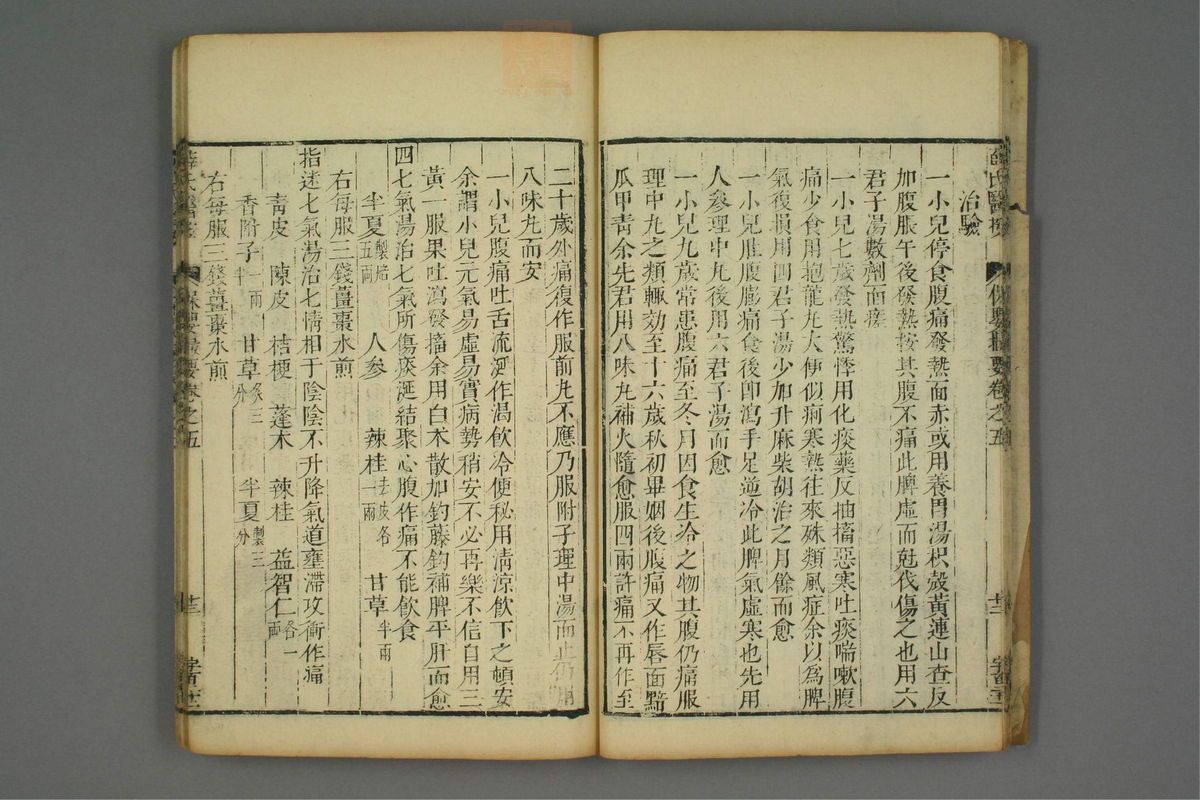 治驗
一小兒停食腹痛發熱面赤或用養胃湯枳殼黃連山查反
加腹脹午後發熱按其腹不痛此脾虛而尅伐傷之也用六
君子湯數劑而瘥
一小兒七歲發熱驚悸用化痰藥反抽搐惡寒吐痰喘嗽腹
痛少食用抱龍丸大便似痢寒熱往來殊類風症余以爲脾
氣復損用四君子湯少加升麻柴胡治之月餘而愈
一小兒肚腹膨痛食後卽瀉手足逆冷此脾氣虛寒也先用
人參理中丸後用六君子湯而愈
一小兒九歲常患腹痛至冬月因食生冷之物其腹仍痛服
理中丸之類輒効至十六歲秋初畢姻後腹痛又作唇面黯
瓜甲青余先君用八味丸補火隨愈服四兩許痛不再作至
二十歲外痛復作服前丸不應乃服附子理中湯而止仍用
八味丸而安
一小兒腹痛吐舌流涎作渴飲冷便秘用清涼飲下之頓安
余謂小兒元氣易虛易實病勢稍安不必再藥不信自用三
黃一服果吐瀉發搐余用白朮散加鈎藤鈎補脾平肝而愈
四七氣湯治七氣所傷痰涎結聚心腹作痛不能飲食
半夏製焙五兩 人參 辣桂去皮各一兩 甘草半兩
右每服三錢薑棗水煎
指迷七氣湯治七情相干陰陰不升降氣道壅滯攻衝作痛
青皮 陳皮 桔梗 蓬朮 辣桂 益智仁各一兩
香附子一兩半 甘草炙三分 半夏製三分
右每服三錢薑棗水煎
薛氏醫案 保嬰撮要卷之五